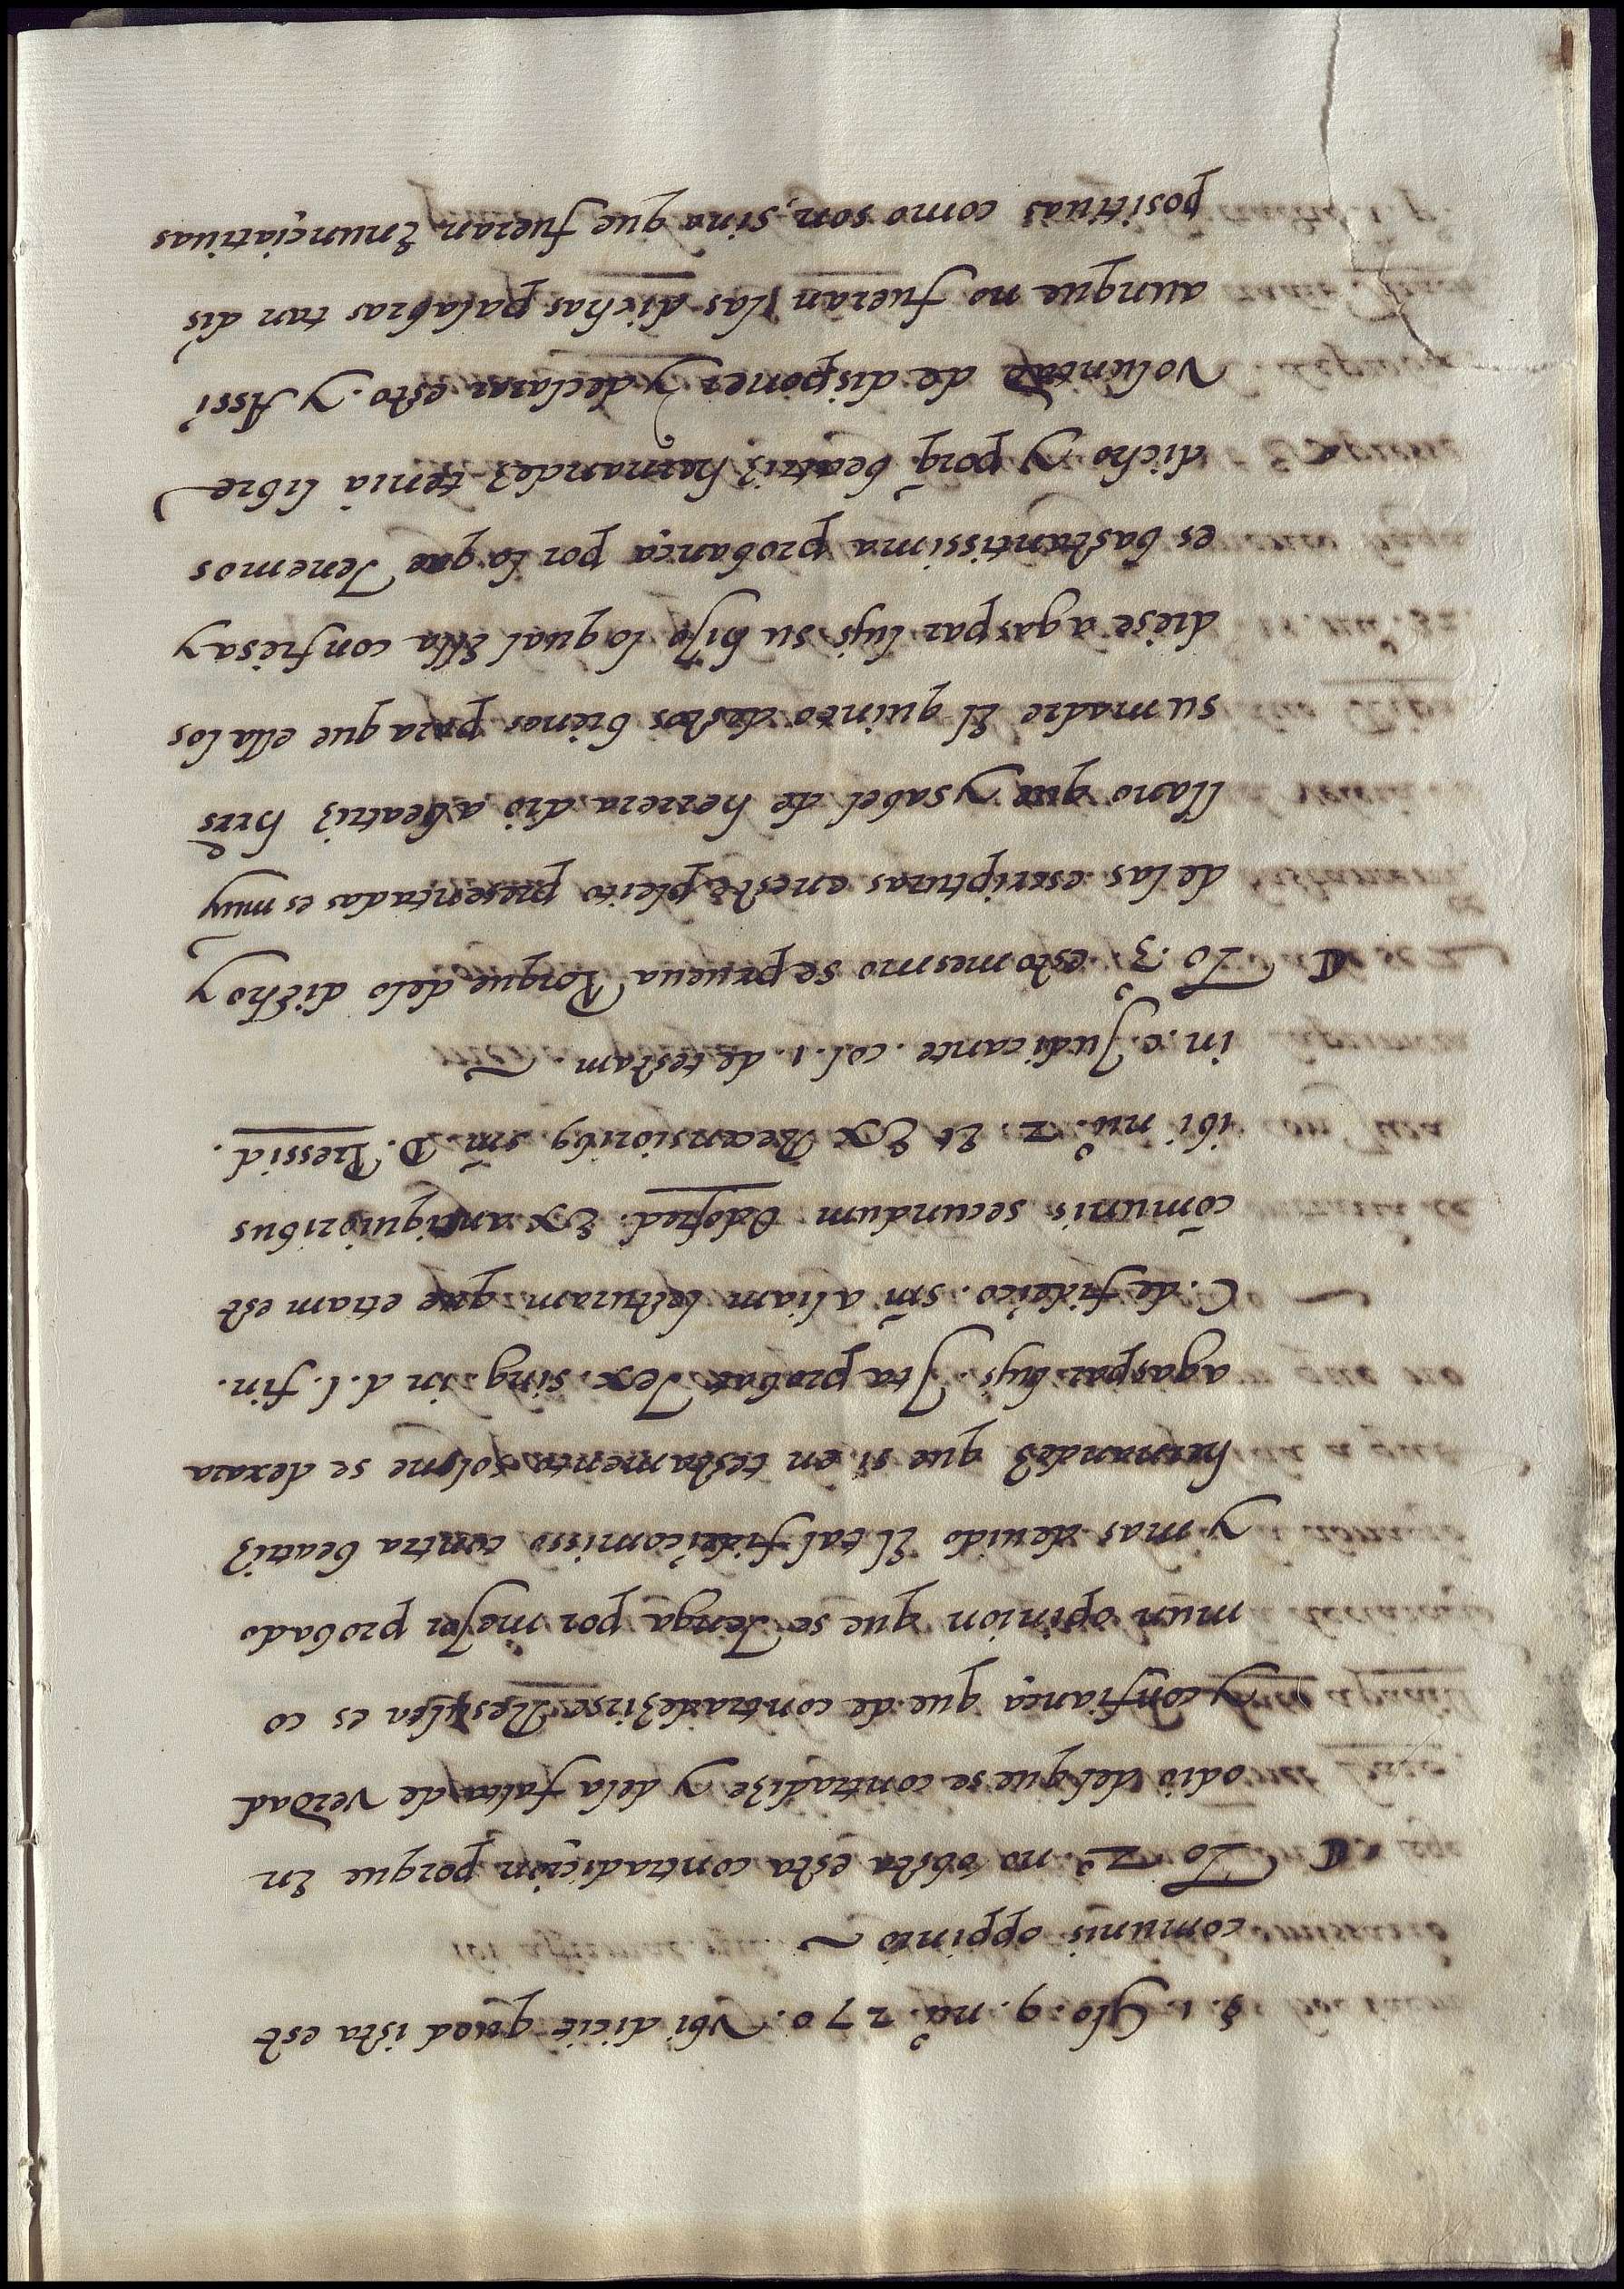 §. 1. Glo. 9. nu.º 270. Vbi dicit quod ista est
comunis oppinio ~
C Lo 2º. no obsta esta contradiçion porque En
odio del que se contradize y dela falta de verdad
y confiança que de contradezirse Resulta es co
mun opinion que se Tenga por mejor probado
y mas deuido El tal fideicomisso contra beatriz
hernandez que si en testamento solene se dexara
a gaspar luys. Ita probat Tex. sing. in d. l. fin.
C. de fideico. sm̄ aliam lecturam que etiam est
cōmunis secundum Odofred. Ex antiquioribus
ibi nu.º 2. Et Ex Recensiorib9 sm̄ D. Pressid.
in. c. Judicante. col. 1. de testam. ~
C Lo .3º. esto mesmo se prueua Porque delo dicho y
de las escripturas eneste pleito presentadas es muy
llano que ysabel de herrera dio a beatriz hrrs̄
su madre El quinto destos bienes para que ella los
diese a gaspar luys su hijo lo qual Ella confiesa y
es bastantissima probança por lo que Tenemos
dicho y porq̄ beatriz hernandez tenia libre
Voluntad de disponer y declarar esto. y Assi
aunque no fueran las dichas palabras tan dis
positiuas como son, sino que fueran Enunçiatiuas